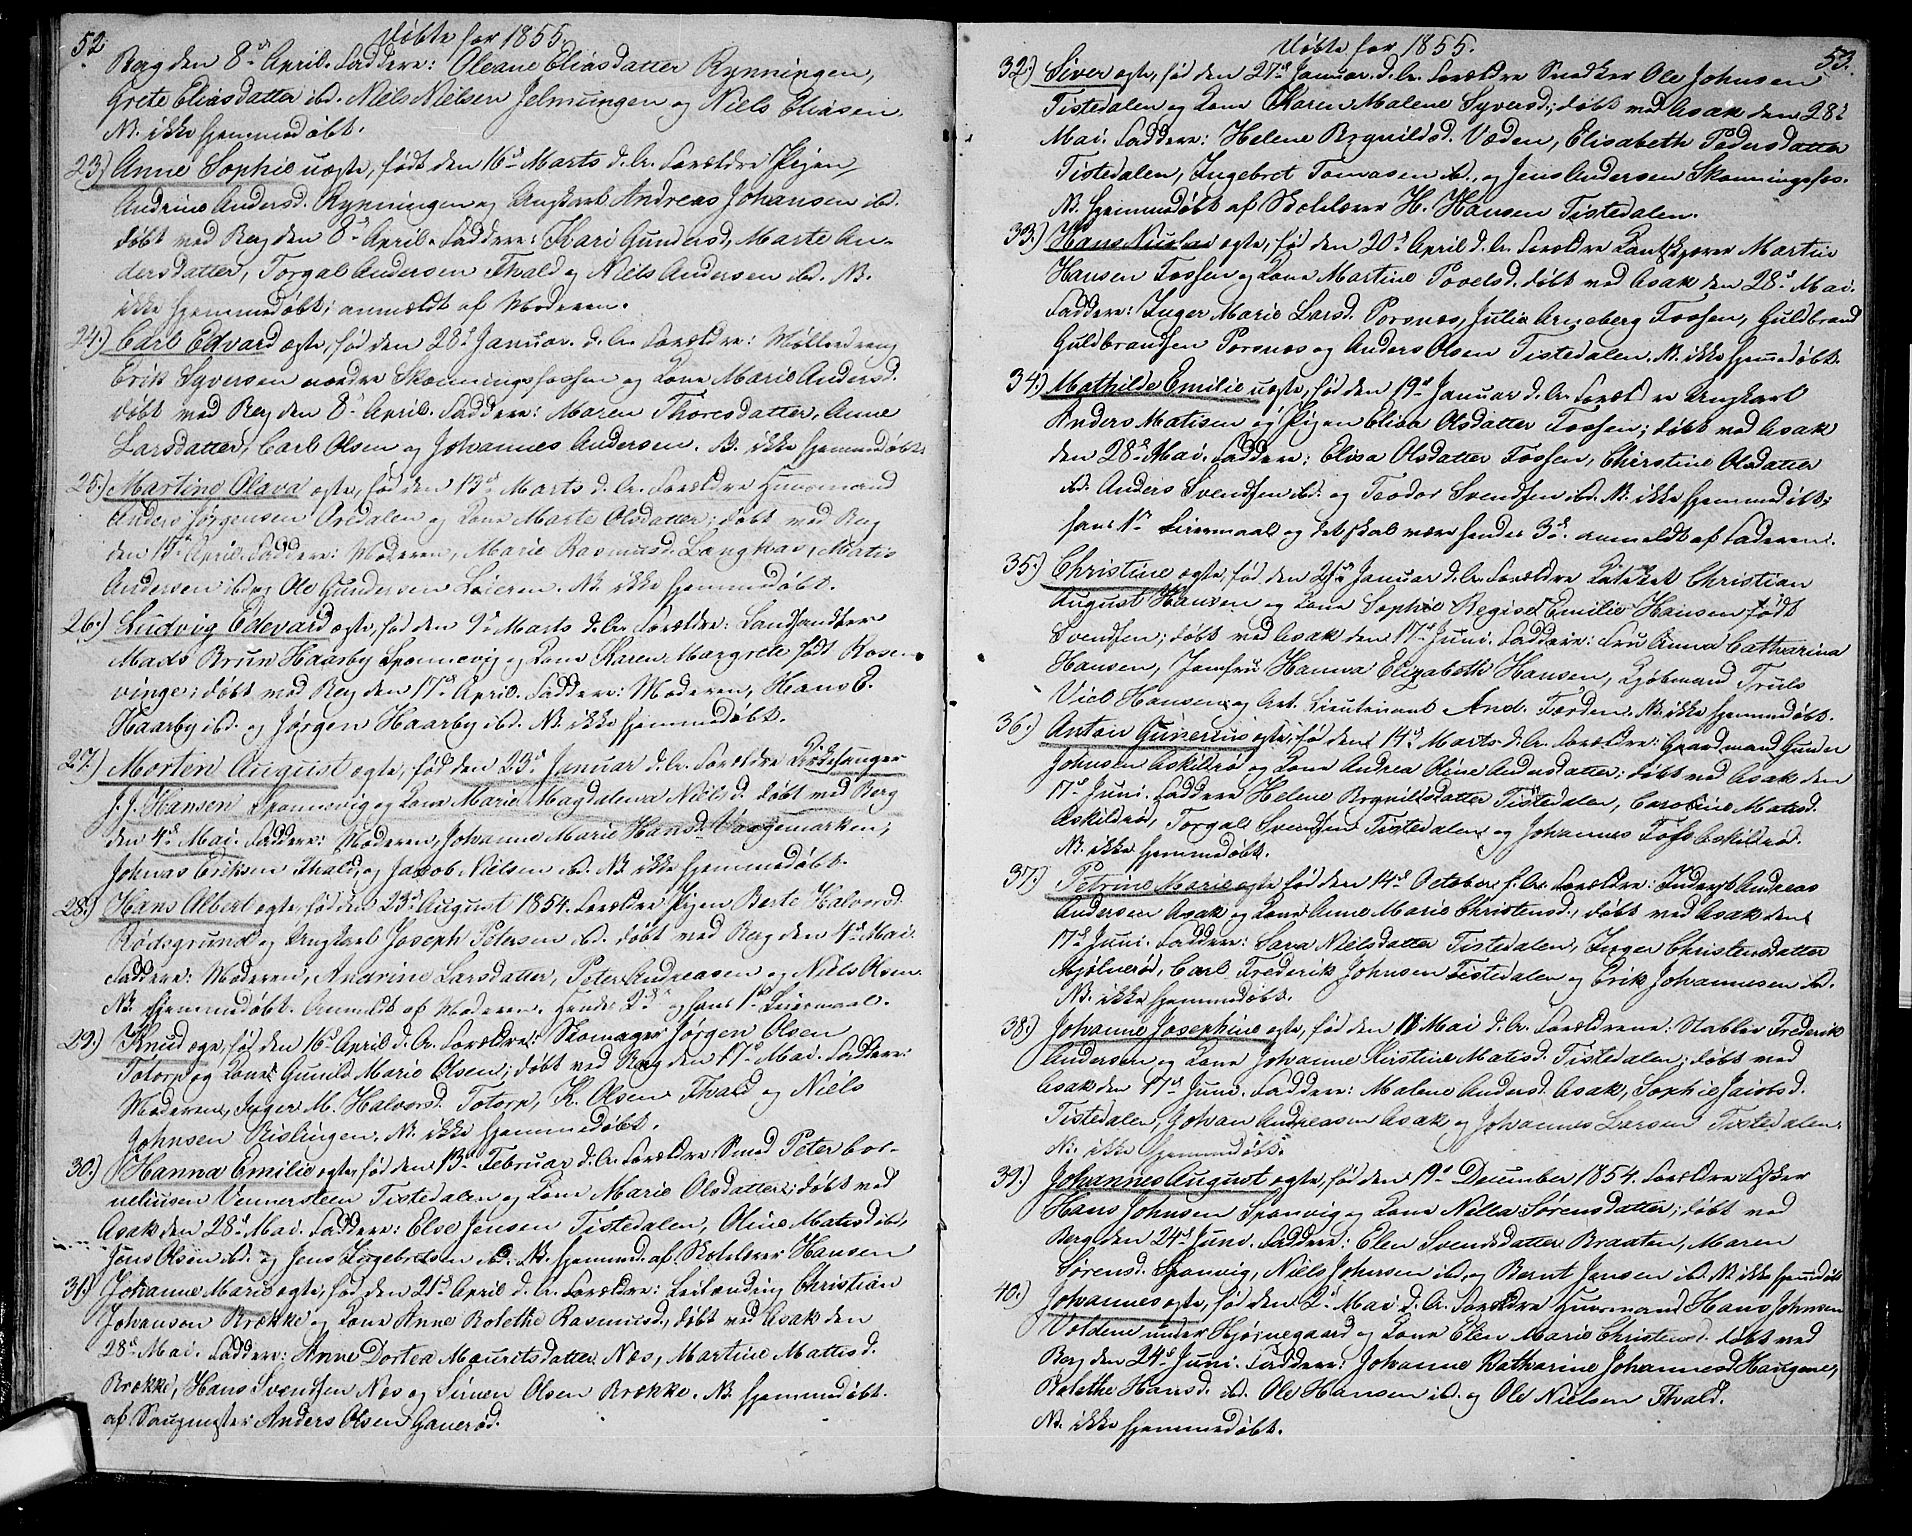 52.
Døbte for 1855.
Berg den 8d April. Faddere: Oleane Eliasdatter Rynningen,
Grete Eliasdatter ibd. Niels Nielsen Jelmungen og Niels Eliasen.
NB. ikke hjemmedøbt.
23.) Anne Sophie uægte, født den 16d Marts d. A. Forældre Pigen
Andrine Andersd. Rynningen og Ungkarl Andreas Johansen ibd.
døbt ved Berg den 8d April. Faddere: Kari Gundersd, Marte An-
dersdatter, Torgal Andersen Thvald og Niels Andersen ibd. NB.
ikke hjemmedøbt; anmeldt af Moderen.
24.) Carl Edvard ægte, fød den 28d Januar d. A. Forældre: Møllerdreng
Erik Syversen nordre Skonningsfossen og Kone Marie Andersd.
døbt ved Berg den 8d April. Faddere: Maren Thoresdatter, Anne
Larsdatter, Carl Olsen og Johannes Andersen. NB. ikke hjemmedøbt.
25.) Martine Olava ægte, fød den 13d Marts d. A. Forældre Huusmand
Anders Jørgensen Aredalen og Kone Marte Olsdatter; døbt ved Berg
den 15d April. Faddere: Moderen, Marie Rasmusd. Langkas, Matis
Andersen ibd og Ole Gundersen Leieren. NB. ikke hjemmedøbt.
26.) Ludvig Edevard ægte, fød den 9d Marts d. A. Forældre: Landhandler
Mads Brun Haarby Sponnevig og Kone Karen Margrete født Rosen-
vinge; døbt ved Berg den 17d April. Faddere: Moderen, Hans E.
Haarby ibd. og Jørgen Haarby ibd. NB. ikke hjemmedøbt.
27.) Morten August ægte, fød den 23d Januar d. A. Forældre Kirkesanger
J. J. Hansen Sponnevig og Kone Marie Magdalena Nielsd. døbt ved Berg
den 4d Mai. Faddere: Moderen, Johanne Marie Hansd. Vaagemarken;
Johnas Eriksen Thvald, og Jacob Nielsen ibd. NB. ikke hjemmedøbt.
28.) Hans Albert ægte, fød den 23d August 1854. Forældre Pigen Berte Halvorsd.
Rødsgrund og Ungkarl Joseph Petersen ibd. døbt ved Berg den 4d Mai.
Faddere: Moderen, Andrine Larsdatter, Peter Andreasen og Niels Olsen.
NB. hjemmedøbt. Anmeldt af Moderen. Hendes 2det og hans 1ste Leiermaal.
29.) Knud ægte, fød den 16d April d. A. Forældre: Skomager Jørgen Olsen
Totorp og Kone Gunild Marie Olsen; døbt ved Berg den 17d Mai. Faddere:
Moderen, Inger M. Halvorsd. Totorp, K. Olsen Thvald og Niels
Johnsen Rislingen. NB. ikke hjemmedøbt.
30.) Hanna Emilie ægte, fød den 13d Februar d. A. Forældre Smed Peter Cor-
neliusen Vennersteen Tistedalen og Kone Marie Olsdatter; døbt ved
Asak den 28d Mai. Faddere: Else Jensen Tistedalen, Oline Matisd ibd,
Jens Olsen ibd. og Jens Ingebretsen ibd. NB. hjemmed. af Skolelærer Hansen
31.) Johanne Marie ægte, fød den 21d April d. A. Forældre: Leilending Christian
Johansen Brække og Kone Anne Bolethe Rasmusd., døbt ved Asak den
28d Mai. Faddere: Anne Dortea Mauritsdatter Næs, Martine Mattisd.
Brække, Hans Svendsen Næs og Simen Olsen Brække. NB. hjemmedøbt.
af Saugmester Anders Olsen Ganerød.
Døbte for 1855.
53.
32.) Siver ægte, fød den 27d Januar d. A. Forældre Snedker Ole Johnsen
Tistedalen og Kone Karen Malene Syversd; døbt ved Asak den 28d
Mai. Faddere: Helene Brynildsd. Veden, Elisabeth Pedersdatter
Tistedalen, Ingebret Tomasen ibd, og Jens Andersen Skonningsfos.
NB. hjemmedøbt af Skolelærer H. Hansen Tistedalen.
33.) Hans Nicolai ægte, fød den 20d April d. A. Forældre Kantskjører Martin
Hansen Fossen og Kone Martine Povelsd. døbt ved Asak den 28d Mai.
Faddere: Inger Marie Larsd. Porsnes, Julie Arneberg Fossen, Guldbrand
Guldbrandsen Porsnes og Anders Olsen Tistedalen. NB. ikke hjemmedøbt.
34.) Mathilde Emilie uægte, fød den 19d Januar d. A. Forældre Ungkarl
Anders Matisen og Pigen Elisa Olsdatter Fossen; døbt ved Asak
den 28d Mai. Faddere: Elisa Olsdatter Fossen, Christine Olsdatter
ibd. Anders Svendsen ibd. og Teodor Svendsen ibd. NB. ikke hjemmedøbt;
hans 1ste Leiermaal og det skal være hendes 3d. anmeldt af Faderen.
35.) Christine ægte, fød den 21d Januar d. A. Forældre Kateket Christian
August Hansen og Kone Sophie Regise Emilie Hansen født
Svendsen; døbt ved Asak den 17d Juni. Faddere: Fru Anna Catharina
Hansen, Jomfru Hanna Elizabeth Hansen, Kjøbmand Truls
Viel Hansen og Art. Lieutenant And. Færden. NB. ikke hjemmedøbt.
36.) Anton Gunerius ægte, fød den 14d Marts d. A. Forældre: Gaardmand Gunder
Johnsen Askildrø og Kone Andrea Oline Andersdatter; døbt ved Asak den
17d Juni. Faddere Helene Brynildsdatter Tistedalen, Caroline Matisd.
Askildrød, Torgal Svendsen Tistedalen og Johannes Tofs Askildrød.
NB. ikke hjemmedøbt.
37.) Petrine Marie ægte fød den 14d October f. A. Forældre: Inderst Andreas
Andersen Asak og Kone Anne Marie Christensd., døbt ved Asak den
17d Juni. Faddere: Sara Nielsdatter Tistedalen, Inger Christensdatter
Mjølnerød, Carl Frederik Johnsen Tistedalen og Erik Johannesen ibd.
NB. ikke hjemmedøbt.
38.) Johanne Josephine ægte, fød den 11 Mai d. A. Forældrene: Stabler Frederik
Andersen og Kone Johanne Kirstine Matisd. Tistedalen; døbt ved
Asak den 17d Juni. Faddere: Malene Andersd. Asak, Sophie Jacobsd.
Tistedalen, Johan Andreasen Asak og Johannes Larsen Tistedalen.
NB. ikke hjemmedøbt.
39.) Johannes August ægte, fød den 19d December 1854. Forældre Fisker
Hans Johnsen Sponvig og Kone Nella Sørensdatter; døbt ved
Berg den 24d Juni. Faddere: Elen Svendsdatter Braaten, Maren
Sørensd. Sponvig, Niels Johnsen ibd, og Bernt Jensen ibd. NB. ikke hjemmedøbt
40.) Johannes ægte, fød den 2d Mai d. A. Forældre Huusmand Hans Johnsen
Voldene under Hjørnegaard og Kone Elen Marie Christensd. døbt ved
Berg den 24d Juni. Faddere: Johanne Katharine Johannesd. Haugene,
Bolethe Hansd. ibd. Ole Hansen ibd. og Ole Nielsen Thvald.
NB. ikke hjemmedøbt.